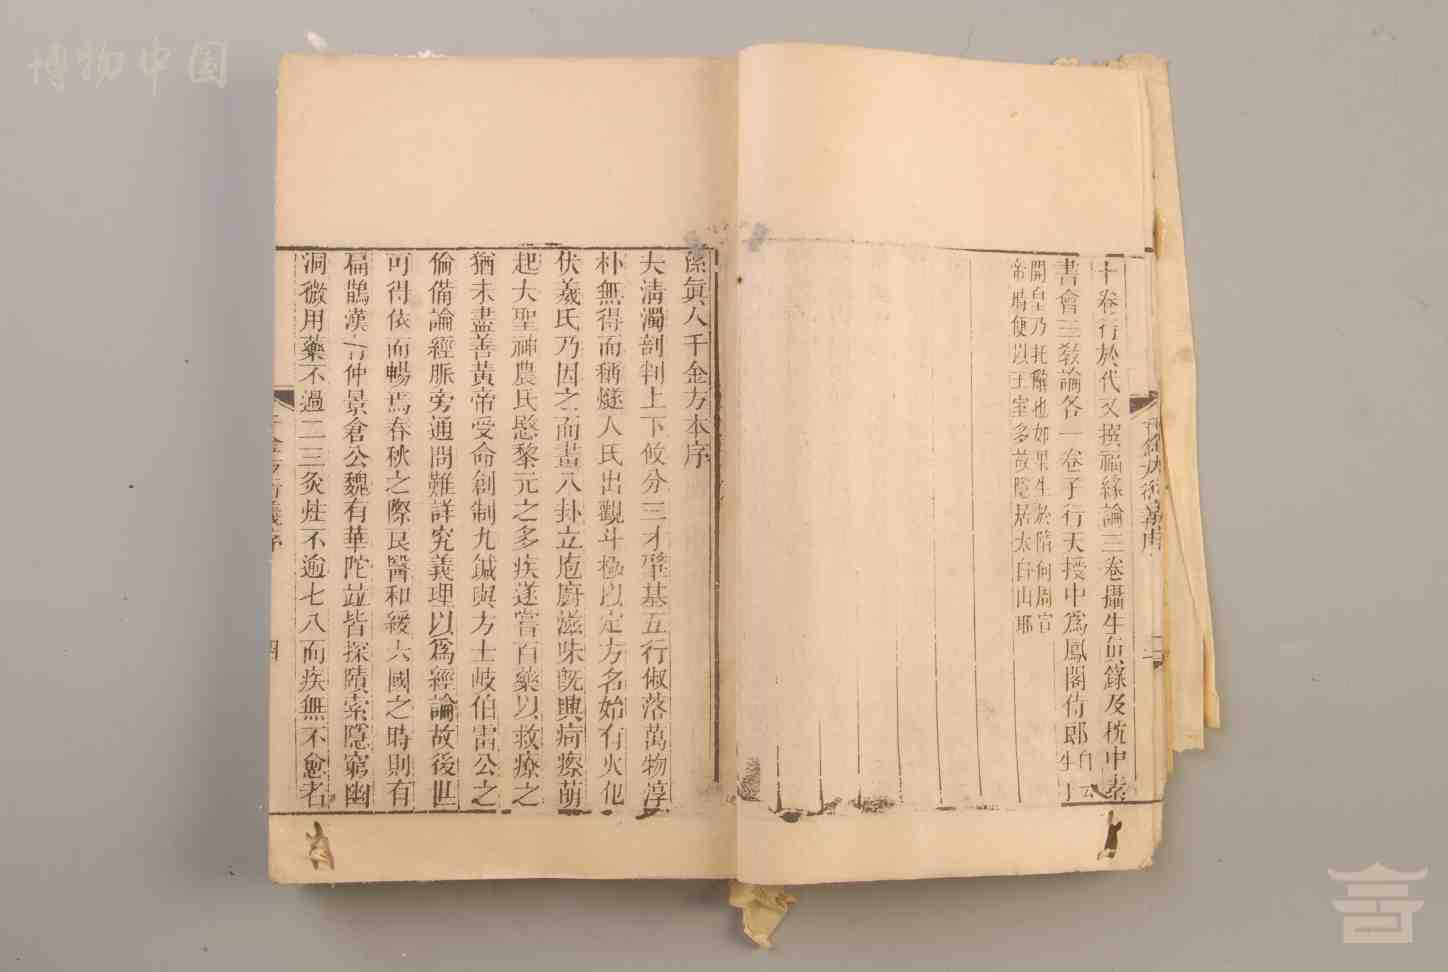 博物中国
十卷行於代又撰福緣論三卷攝生眞錄及枕中素
書會三教論各一卷子行天授中爲鳳閣侍郎自云生
開皇乃託辭也如果生於隋何周宣
帝時便以王室多故隱居太白山耶
孫眞人千金方本序
夫清濁剖判上下攸分三才肇基五行俶落萬物淳
朴無得而稱燧人氏出觀斗極以定方名始有火化
伏羲氏乃因之而畫八卦立庖廚滋味旣興痾瘵萌
起大聖神農氏愍黎元之多疾遂嘗百藥以救療之
猶未盡善黃帝受命創制九鍼與方士岐伯雷公之
倫備論經脈旁通問難詳究義理以爲經論故後世
可得依而暢焉春秋之際良醫和緩六國之時則有
扁鵲漢有仲景倉公魏有華陀並皆探賾索隱窮幽
洞微用藥不過二三灸炷不逾七八而疾無不愈者
千金方衍義序
四